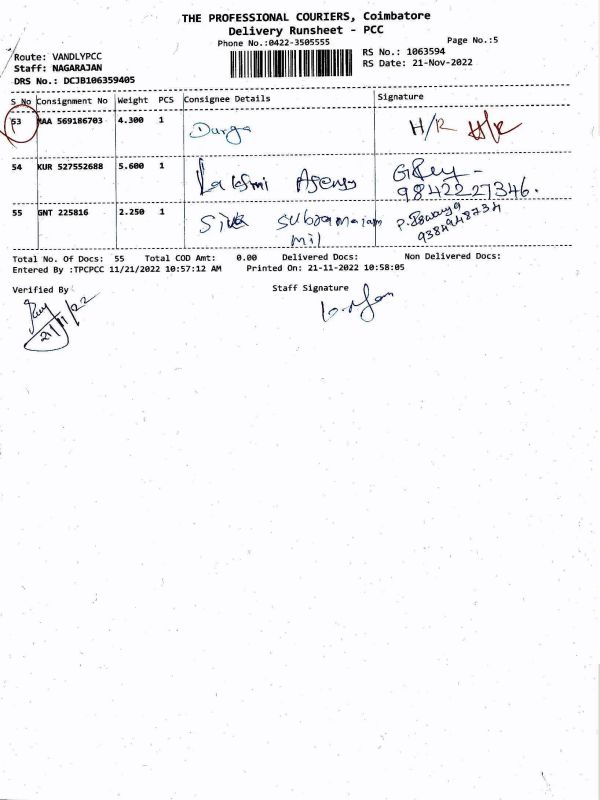 THE PROFESSIONAL COURIERS, Coimbatore
Delivery Runsheet - PCC
Phone No.:0422-3505555
Page No.:5
Route: VANDLYPCC
RS No.: 1063594
Staff: NAGARAJAN
RS Date: 21-Nov-2022
DRS No.: DCJB106359405
S No Consignment No Weight PCS Consignee Details Signature
53 MAA 569186703 4.300 1 Durga H/R H/R
54 KUR 527552688 5.600 1 Lakshmi Agensy
9842227346.
55 GNT 225816 2.250 1 Siva subramaiam
mil
9384948734
Total No. Of Docs: 55 Total COD Amt: 0.00 Delivered Docs: Non Delivered Docs:
Entered By :TPCPCC 11/21/2022 10:57:12 AM Printed On: 21-11-2022 10:58:05
Verified By
Staff Signature
21/11/22